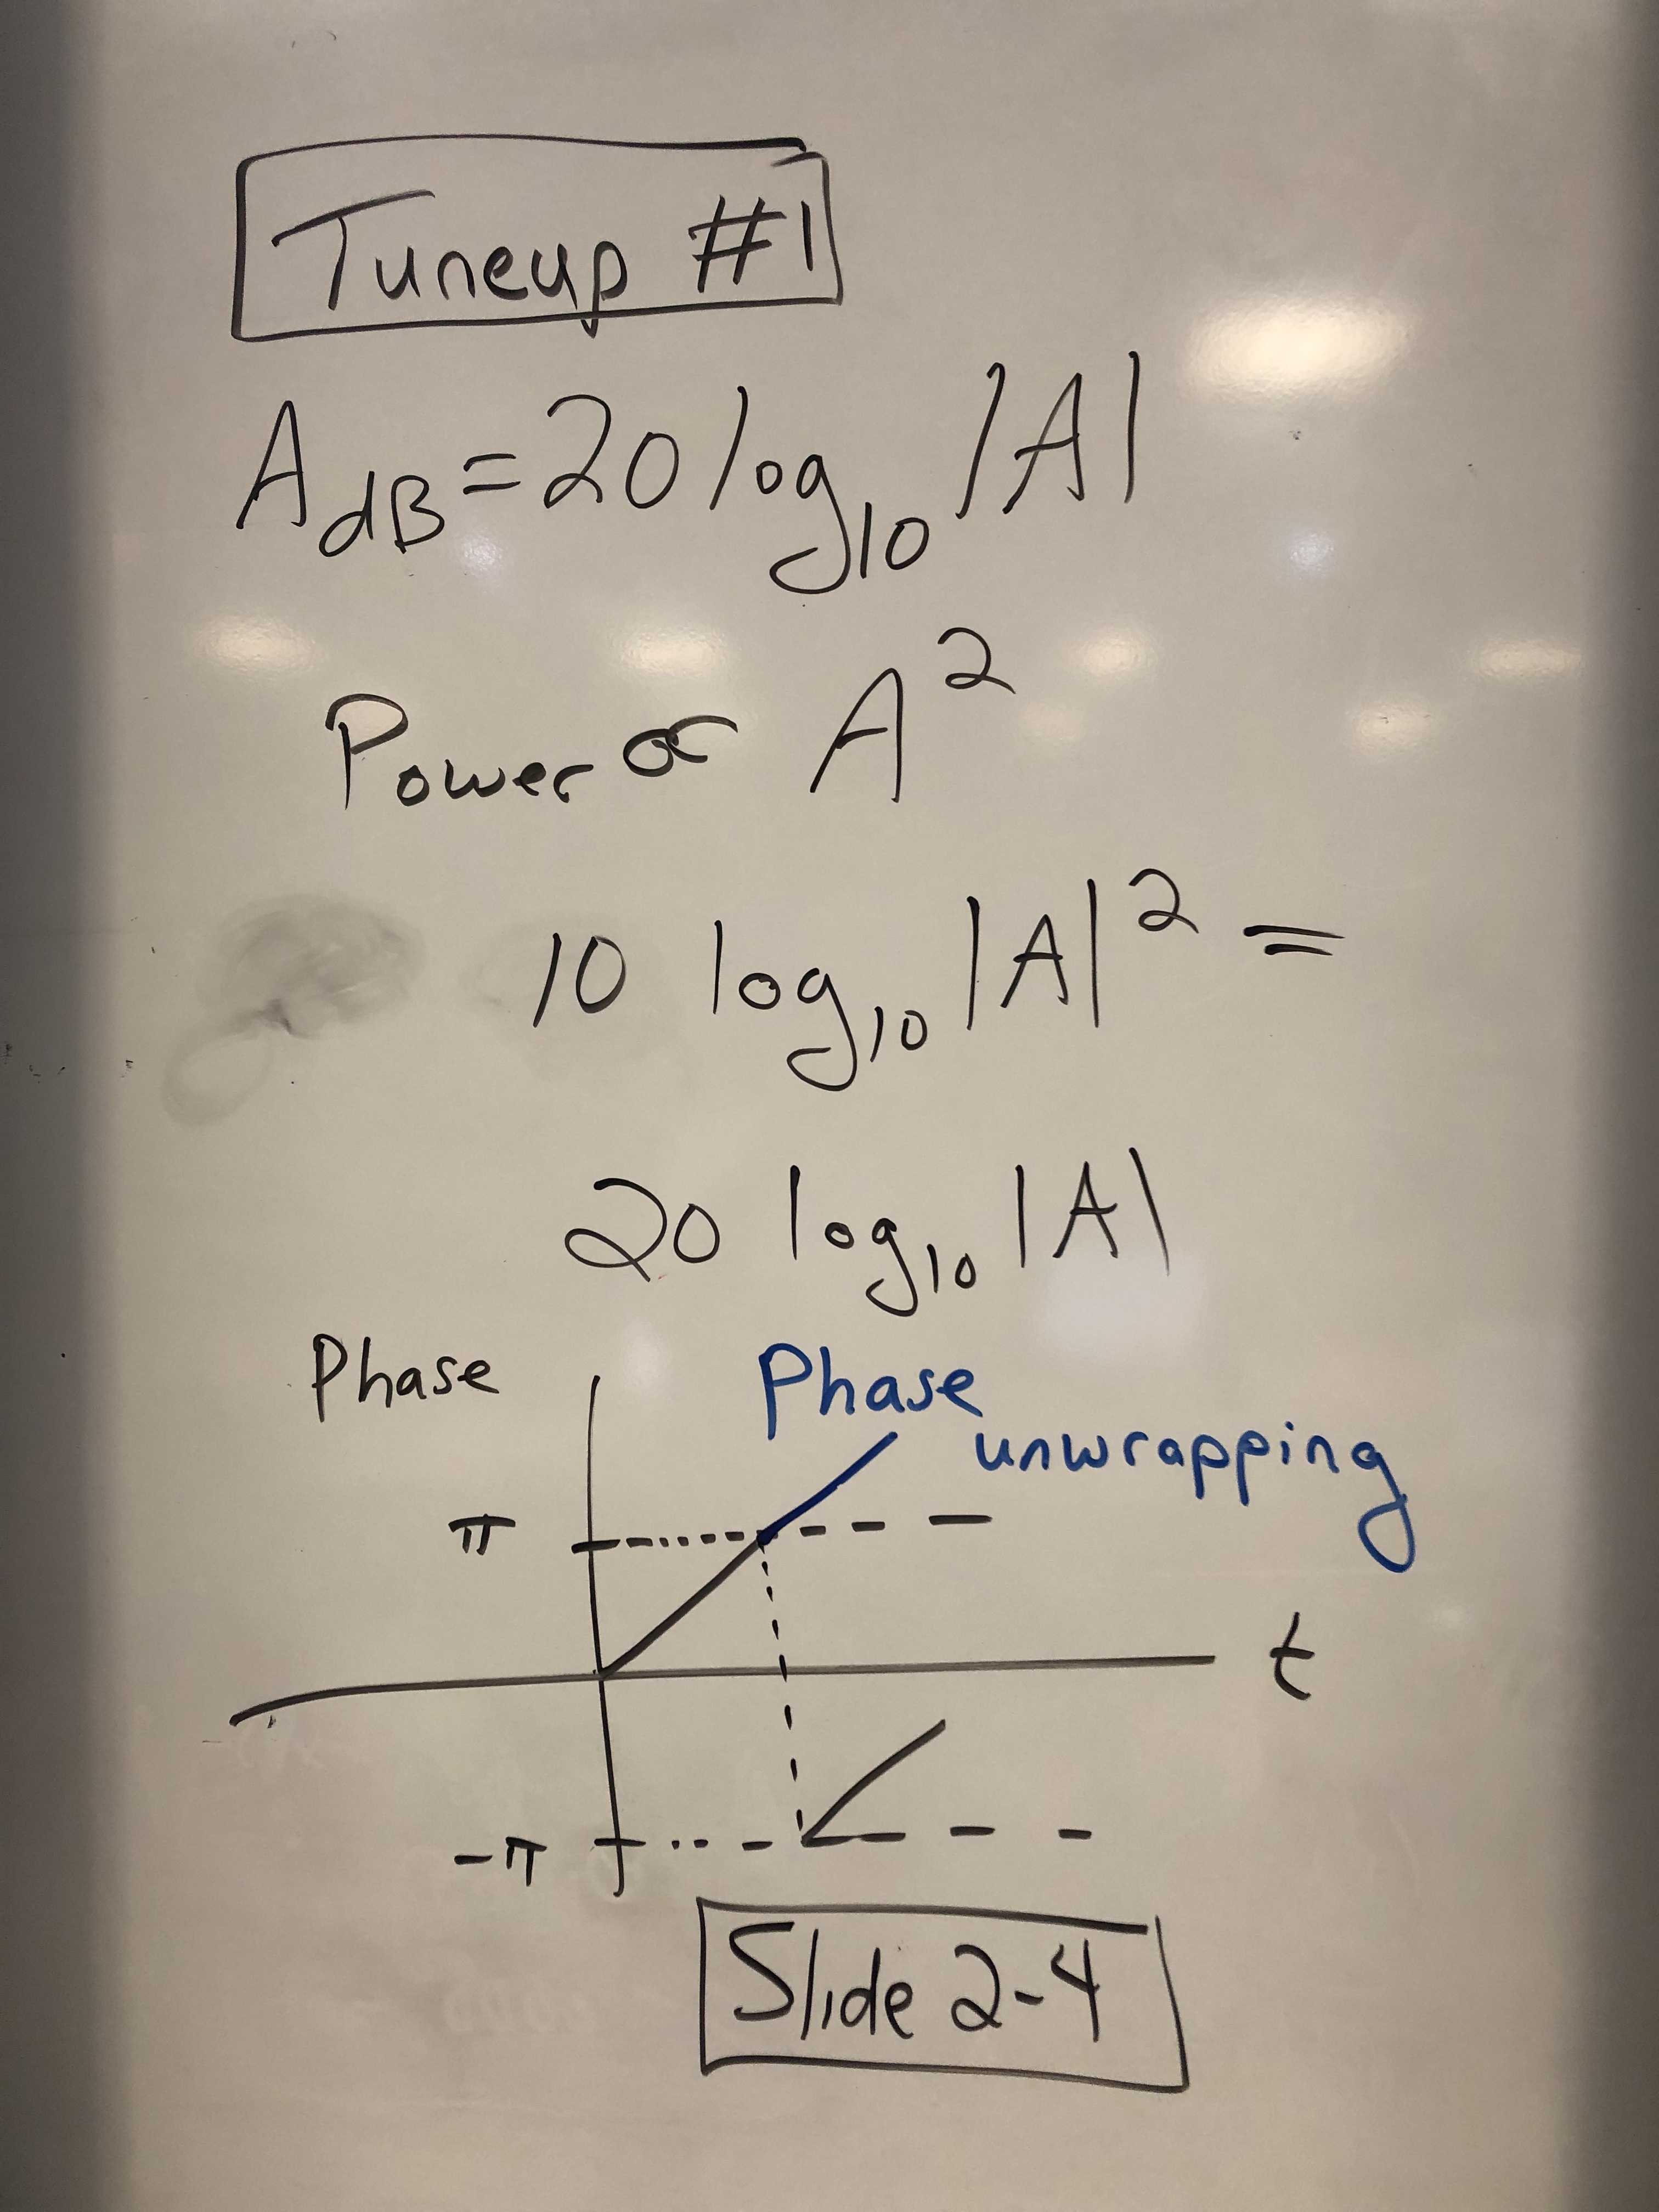 Tuneup #1
A_dB = 20 log_10 |A|
Power ∝ A^2
10 log_10 |A|^2 =
20 log_10 |A|
Phase
Phase
unwrapping
π
t
-π
Slide 2-4